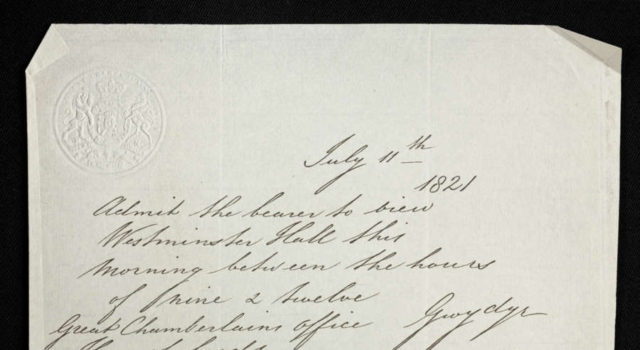 July 11th
1821
Admit the bearer to view
Westminster Hall this
Morning between the hours
of nine & twelve
Great Chamberlains office Gwydyr